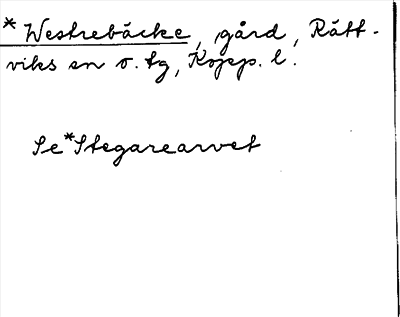 * Westrebäcke, gård, Rätt-
viks sn o. tg, Kopp. l.
Se *Stegarearvet